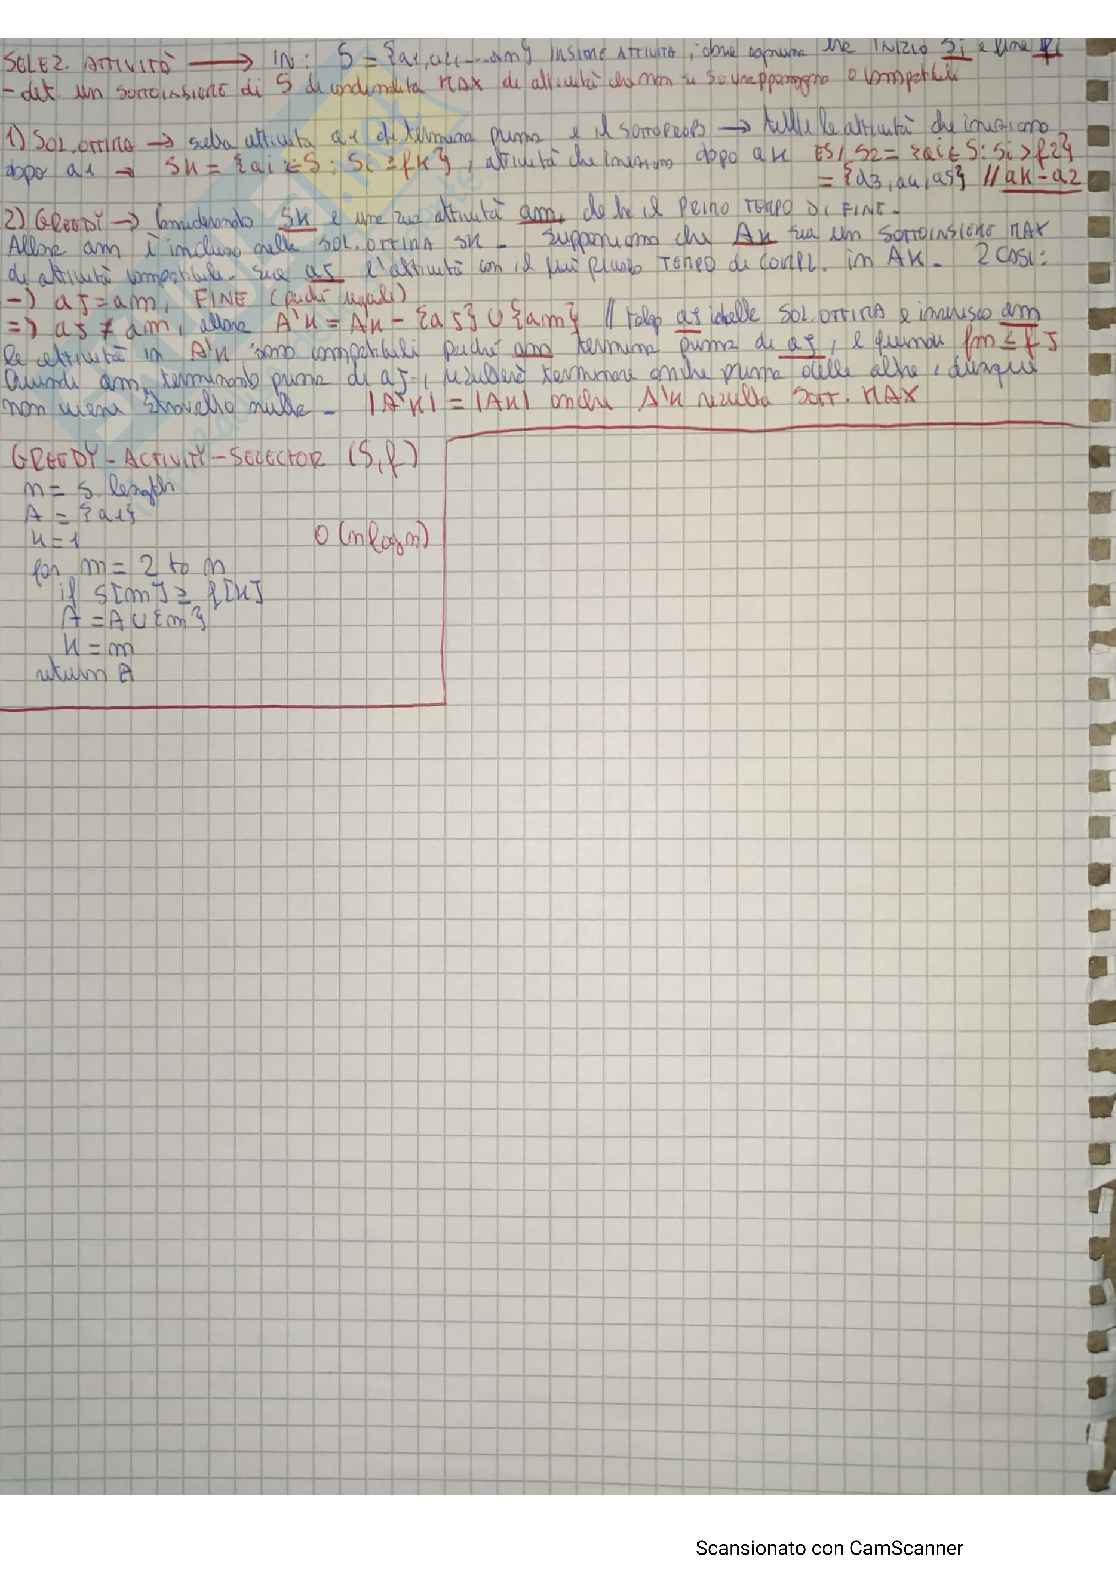 SELEZ. ATTIVITÀ → IN: S = {a1, a2, ... am} INSIEME ATTIVITÀ, dove ognuna ha INIZIO Si e fine fi
- det un sottoinsieme di S di cardinalità MAX di attività che non si sovrappongono o compatibili
1) SOL. OTTIMA → scelta attività a1 che termina prima e il SOTTOPROB → tutte le attività che iniziano
dopo a1 → SK = {ai ∈ S: Si ≥ fK}, attività che iniziano dopo aK ES/ S2 = {ai ∈ S: Si > f2}
= {a3, a4, a5} // aK = a2
2) GREEDY → Considerando SK e una sua attività am, che ha il PRIMO TEMPO DI FINE.
Allora am è inclusa nella SOL. OTTIMA SK. Supponiamo che AK sia un SOTTOINSIEME MAX
di attività compatibili. Sia aJ l'attività con il più piccolo TEMPO di COMPL. in AK. 2 CASI:
-) aJ = am, FINE (perché uguali)
=) aJ ≠ am, allora A'K = AK - {aJ} U {am} // tolgo aJ dalla SOL. OTTIMA e inserisco am
le attività in A'K sono compatibili perché am termina prima di aJ, e quindi fm ≤ fJ
Quindi am, terminando prima di aJ, terminare anche prima delle altre, dunque
non viene nulla - |A'K| = |AK| anche A'K risulta SOTT. MAX
GREEDY-ACTIVITY-SELECTOR (S, f)
n = s. length
A = {a1}
K = 1
O(n log n)
for m = 2 to n
if S[m] ≥ f[K]
A = A U {m}
K = m
return A
Scansionato con CamScanner